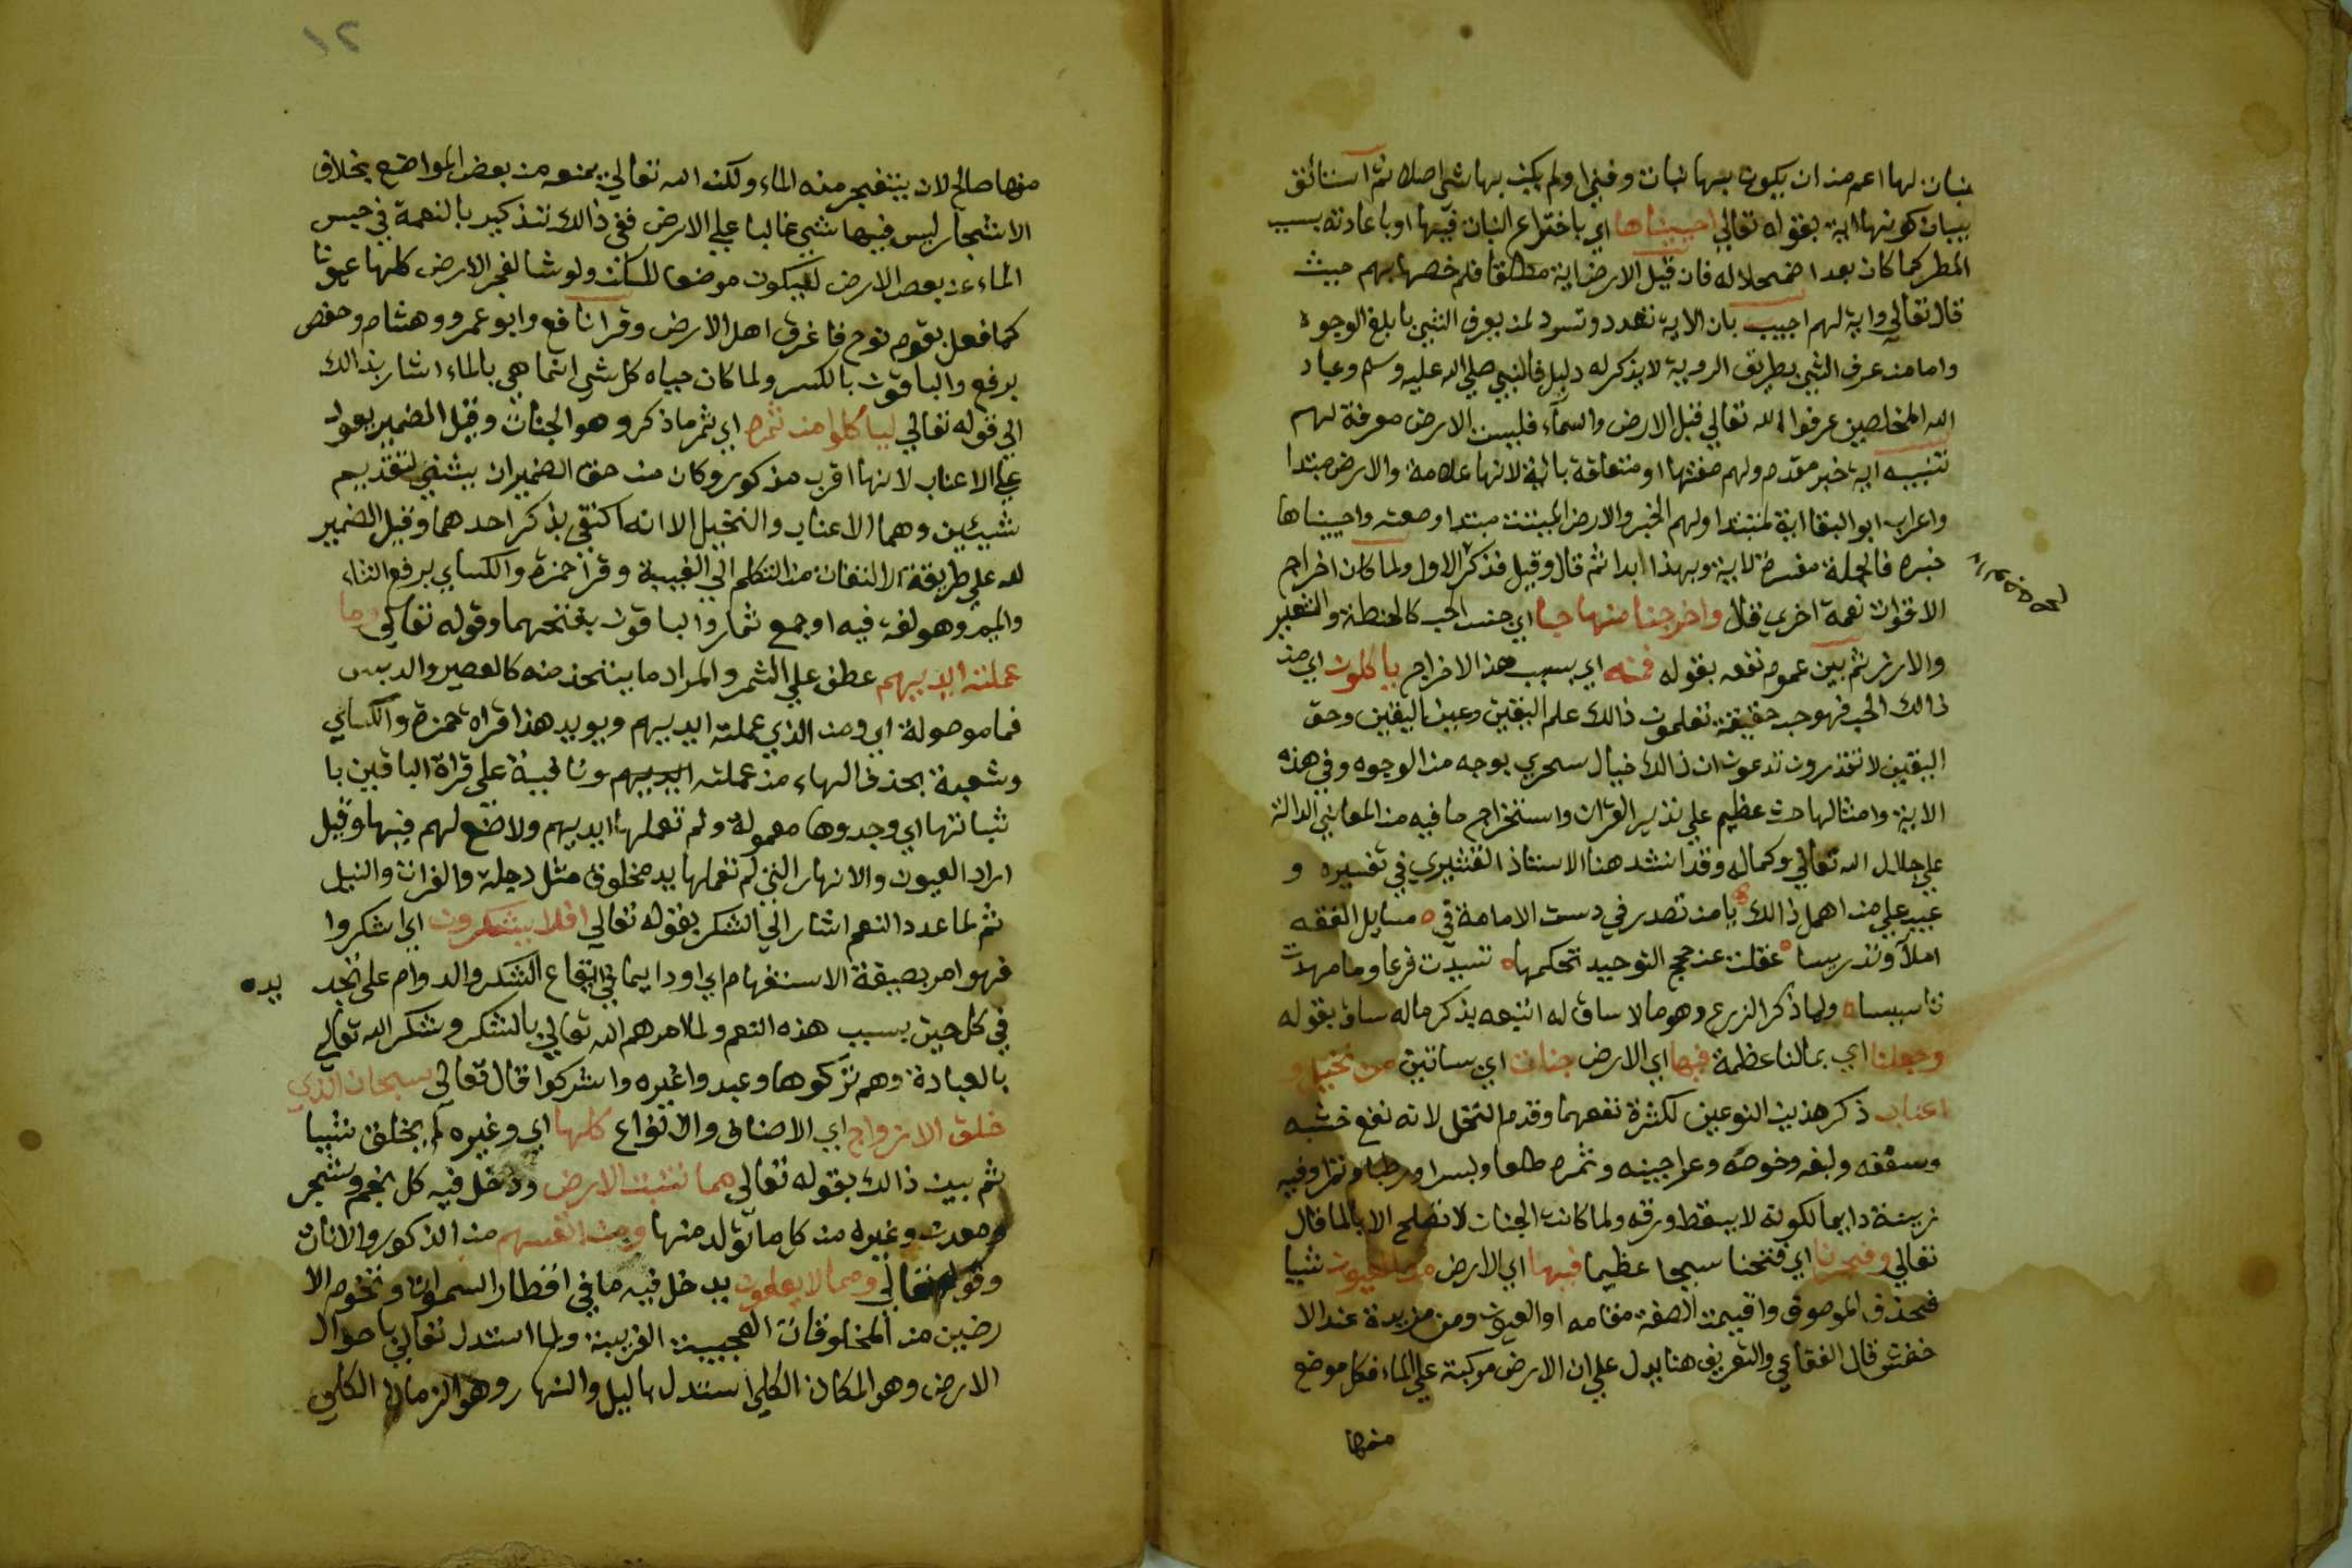 نبات لها اعم من ان يكون بها نبات وفني او لم يكن بها شي اصلا ثم استانق
ببيان كونها اية بقوله تعالي احييناها اي باختراع النبات فيها او باعادته بسبب
المطر كما كان بعد اضمحلاله فان قيل الارض اية مطلقا فلم خصها بهم حيث
قال تعالي واية لهم اجيب بان الاية تعدد وتسرد لمن يعرف الشي بابلغ الوجوه
واما من عرف الشي بطريق الروية لا يذكر له دليل فالنبي صلي الله عليه وسلم وعباد
الله المخلصين عرفوا الله تعالي قبل الارض والسماء فليست الارض معرفة لهم
تنبيه اية خبر مقدم ولهم صفتها او متعلقة باية لانها علامة والارض مبتدا
واعرب ابو البقا اية مبتدا ولهم الخبر والارض الميتة مبتدا وصفته واحييناها
خبره فالجملة مفسرة لاية وبهذا ابدا ثم قال وقيل فذكر الاول ولما كان اخراج
الاقوات نعمة اخري قال واخرجنا منها حبا اي جنس الحب كالحنطة والشعير
والارز ثم بين عموم نفعه بقوله فمنه اي بسبب هذا الاخراج ياكلون اي من
ذالك الحب فهو حب حقيقة تعلمون ذالك علم اليقين وعين اليقين وحق
اليقين لا تقدرون تدعون ان ذالك خيال سحري بوجه من الوجوه وفي هذه
الاية وامثالها حث عظيم علي تدبر القران واستخراج ما فيه من المعاني الدالة
علي جلال الله تعالي وكماله وقد انشد هنا الاستاذ القشيري في تفسيره و
عيب علي من اهمل ذالك يا من تصدر في دست الامامة في مسايل الفقه
املآ وتدريسا غفلت عن حجج التوحيد تحكمها شيدت فرعا وما مهدت
تاسيسا ولما ذكر الزرع وهو مالا ساق له اتبعه بذكر ماله ساق بقوله
وجعلنا اي بمالنا عظمة فيها اي الارض جنات اي بساتين من نخيل و
اعناب ذكر هذين النوعين لكثرة نفعهما وقدم النخل لانه نفع خشبه
وسعفه وليفه وخوصه وعراجينه وثمره طلعا وبسرا ورطبا وتمرا وفيه
زينة دايما لكونه لا يسقط ورقه ولما كانت الجنات لا تصلح الا بالما قال
تعالي وفجرنا اي فتحنا سبحا عظيما فيها اي الارض من العيون شيا
فحذف الموصوف واقيمت الصفة مقامه او العيون ومن مزيدة عند الا
خفش قال البقاعي والتعريف هنا يدل علي ان الارض مركبة علي الماء فكل موضع
منها
١٢
منها صالح لان ينفجر منه الماء ولكن الله تعالي يمنعه من بعض المواضع بخلاف
الاشجار ليس فيها شي غالبا علي الارض ففي ذالك تذكير بالنعمة في حبس
الماء عن بعض الارض ليكون موضعا للسكن ولو شا لفجر الارض كلها عيونا
كما فعل بقوم نوح فاغرق اهل الارض وقرا نافع وابو عمرو وهشام وحفص
برفع والباقون بالكسر ولما كان حياه كل شي انما هي بالماء اشار بذالك
الي قوله تعالي لياكلوا من ثمره اي ثمر ما ذكر وهو الجنات وقيل الضمير يعود
علي الاعناب لانها اقرب مذكور وكان من حق الضمير ان يثني لتقديم
شيئين وهما الاعناب والنخيل الا انه اكتفي بذكر احدهما وقيل الضمير
لله علي طريقة الالتفات من التكلم الي الغيبة وقرا حمزة والكساي برفع الثاء
والميم وهو لغة فيه او جمع ثمار والباقون بفتحهما وقوله تعالي وما
عملته ايديهم عطف علي الثمر والمراد ما يتخذ منه كالعصير والدبس
فما موصولة اي ومن الذي عملته ايديهم ويويد هذا قراه حمزة والكساي
وشعبة بحذف الهاء من عملته ايديهم ونافية علي قراة الباقين با
ثباتها اي وجدوها معمولة ولم تعملها ايديهم ولا صنع لهم فيها وقيل
اراد العيون والانهار التي لم تعملها يد مخلوق مثل دجلة والفرات والنيل
ثم لما عدد النعم اشار الي الشكر بقوله تعالي افلا يشكرون اي اشكروا
فهو امر بصيغة الاستفهام اي او دايما في ايقاع الشكر والدوام علي تجد يده
في كل حين بسبب هذه النعم ولما امرهم الله تعالي بالشكر وشكر الله تعالي
بالعبادة وهم تركوها وعبدوا غيره واشركوا قال تعالي سبحان الذي
خلق الازواج اي الاصناف والانواع كلها اي وغيره لم يخلق شيا
ثم بين ذالك بقوله تعالي مما تنبت الارض ودخل فيه كل نجم وشجر
ومعدن وغيره من كل ما تولد منها ومن انفسهم من الذكور والاناث
وقوله تعالي ومما لا يعلمون يدخل فيه ما في اقطار السموات وتخوم الا
رضين من المخلوقات العجيبة الغريبة ولما استدل تعالي باحوال
الارض وهو المكان الكلي استدل بالليل والنهار وهو الزمان الكلي